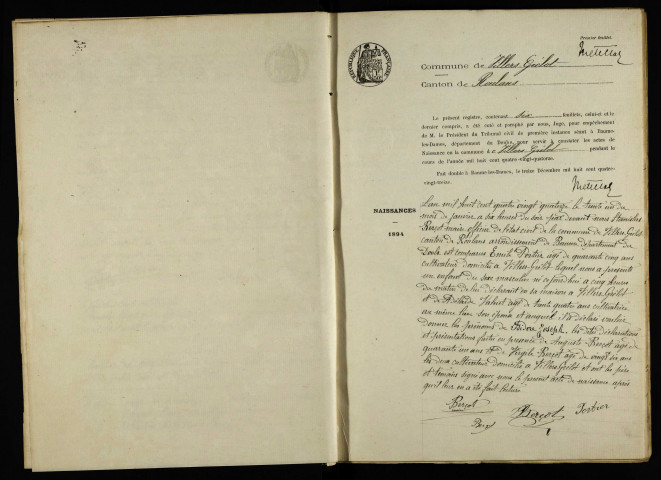 Premier feuillet
Commune de Villers Grélot
Canton de Roulans
RÉPUBLIQUE FRANÇAISE
Le présent registre, contenant six feuillets, celui-ci et le
dernier compris, a été coté et paraphé par nous, Juge, pour empêchement
de M. le Président du Tribunal civil de première instance séant à Baume-
les-Dames, département du Doubs, pour servir à constater les actes de
Naissance en la commune d e Villers Grélot pendant le
cours de l'année mil huit cent quatre-vingt-quatorze.
Fait double à Baume-les-Dames, le treize Décembre mil huit cent quatre-
vingt-treize.
NAISSANCES
1894
L'an mil huit cent quatre vingt quatorze le trente un du
mois de janvier a six heures du soir par devant nous Stanislas
Berçot maire officier de l'état civil de la commune de Villers Grélot
canton de Roulans arrondissement de Baume département du
Doubs est comparu Emile Portier âgé de quarante cinq ans
cultivateur domicilié à Villers Grélot lequel nous a présenté
un enfant du sexe masculin né ce jourd'hui a cinq heures
du matin de lui déclarant en sa maison à Villers Grélot
et de Adélaïde âgée de trente quatre ans cultivatrice
au même lieu son épouse et auquel il a déclaré vouloir
donner les prénoms de Isidore Joseph. les dites déclarations
et présentations faites en présence de Auguste Berçot âgé de
quarante ans et de Virgile Berçot âgé de vingt six ans
les deux cultivateurs domiciliés à Villers Grélot et ont les père
et témoins signé avec nous le présent acte de naissance après
qu'il leur en a été fait lecture
Berçot
Berçot Portier